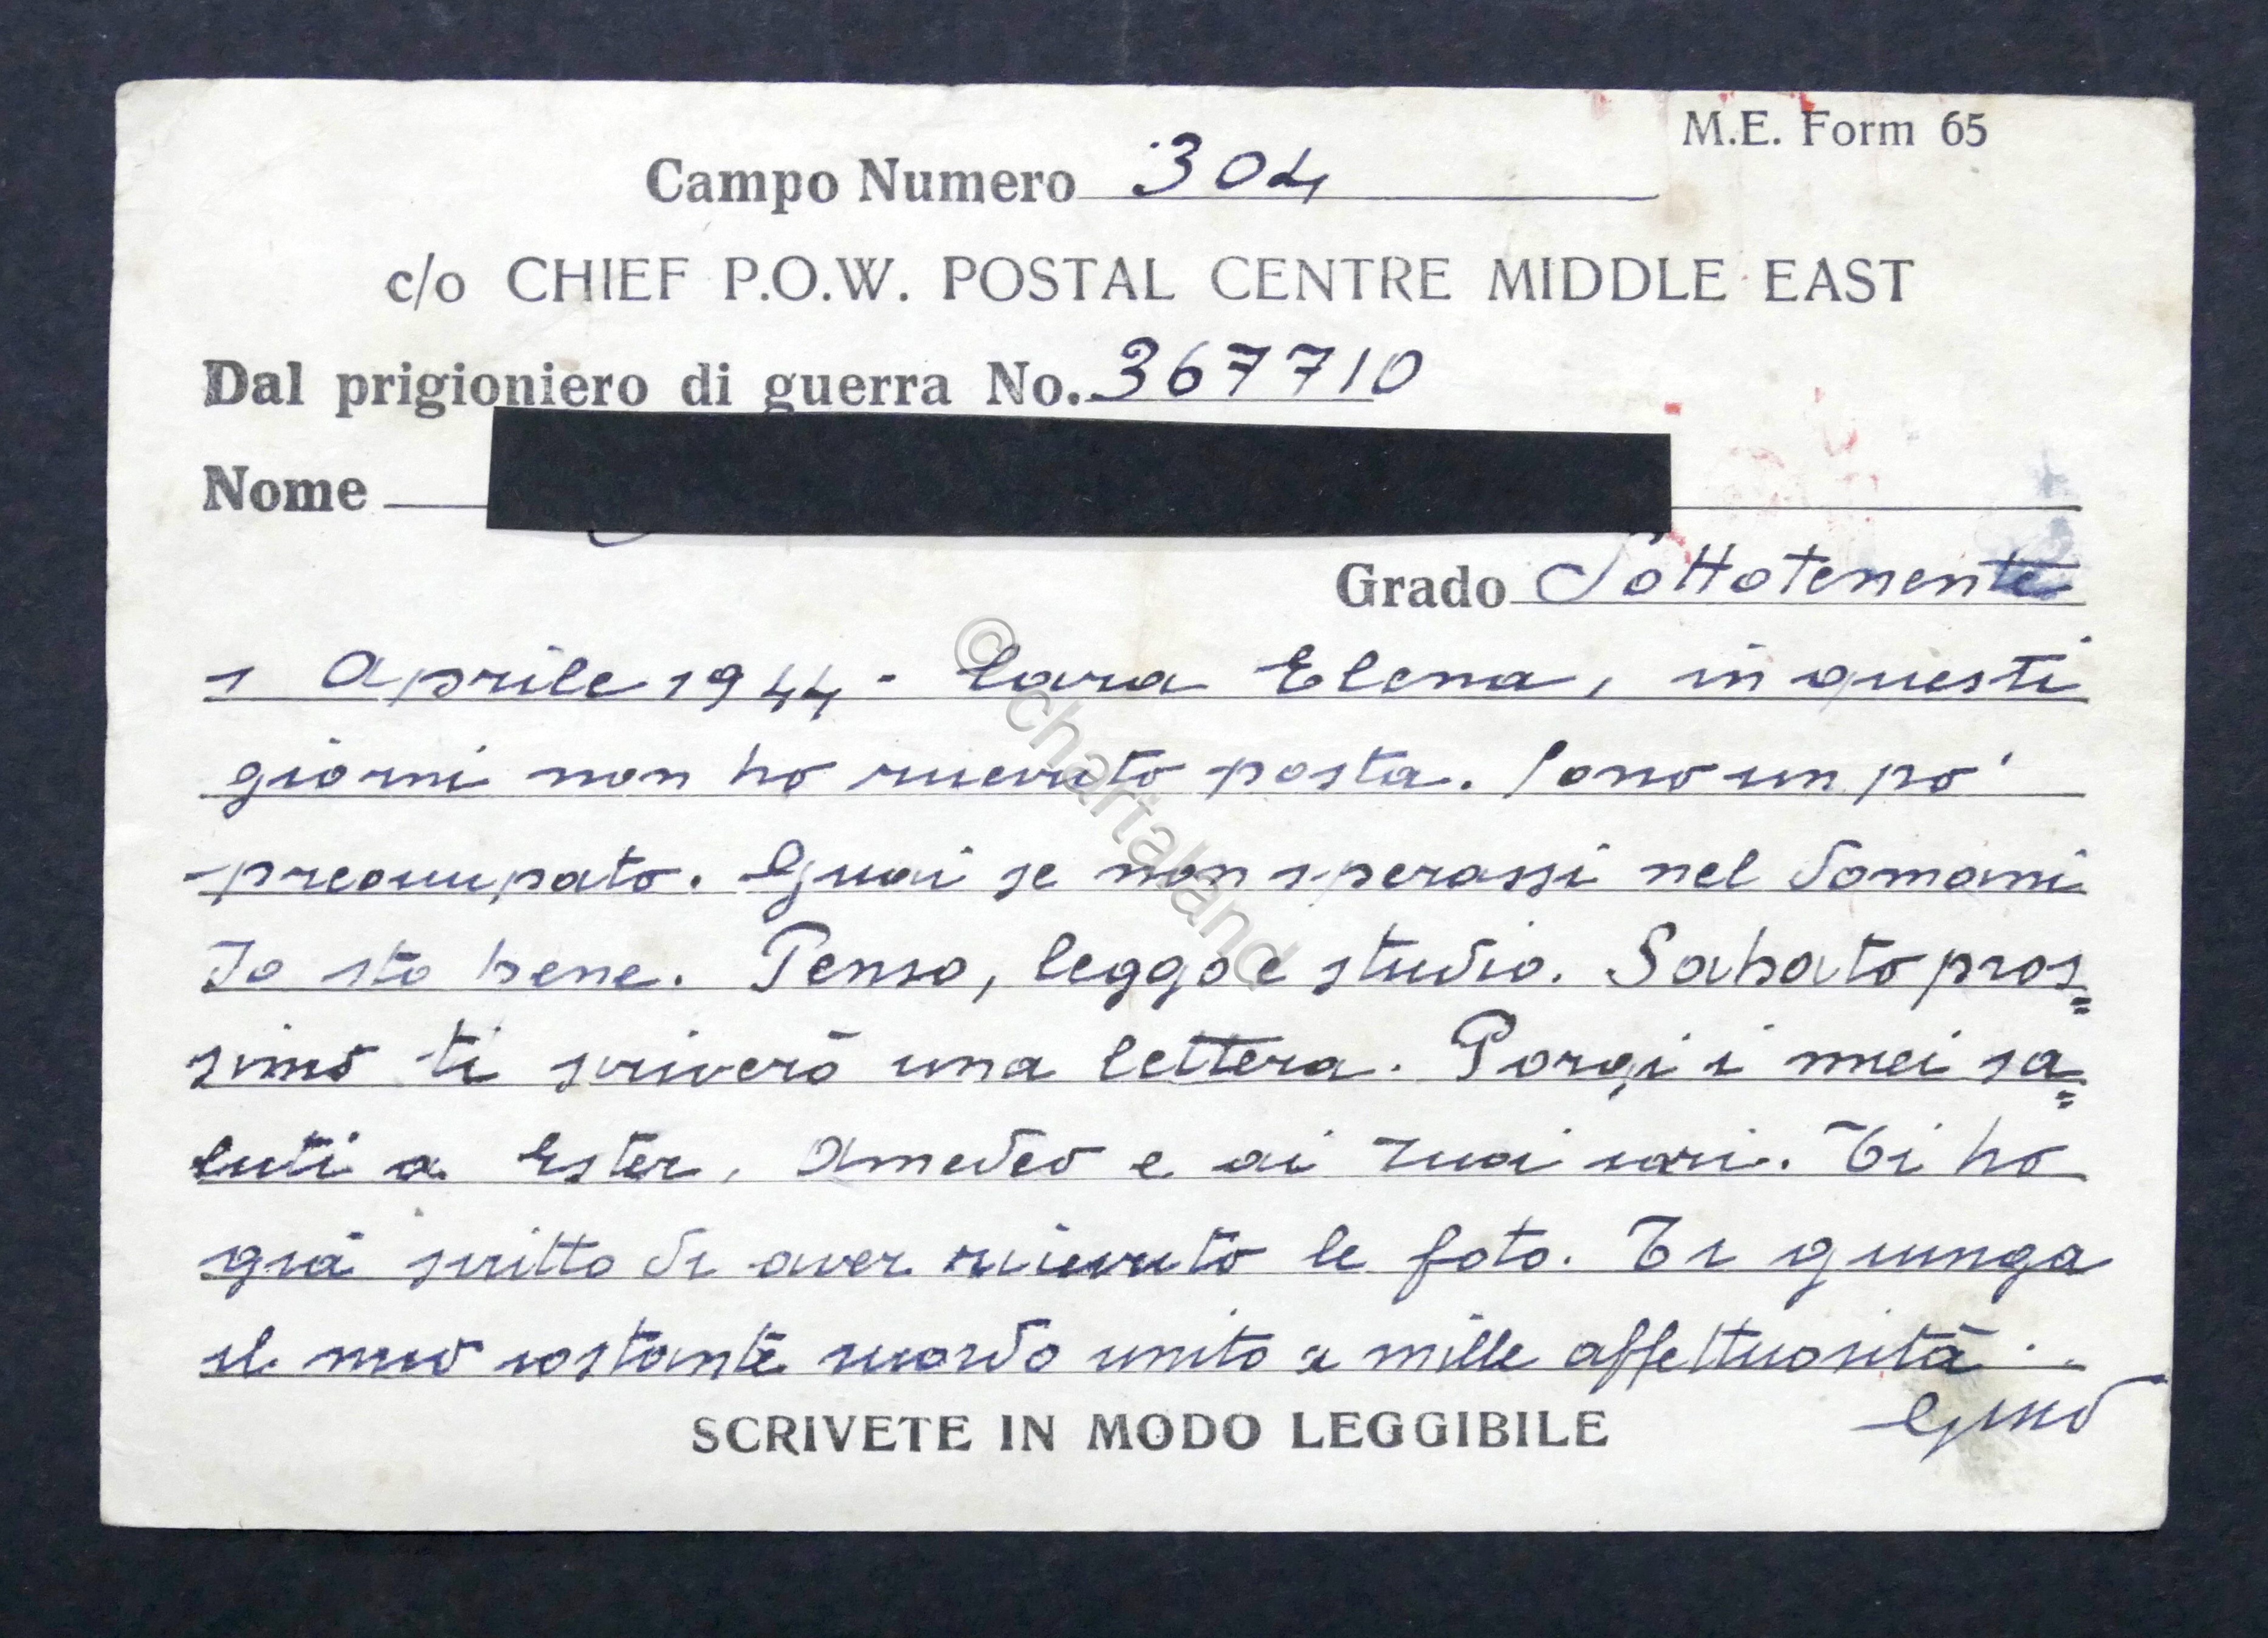 M.E. Form 65
Campo Numero 304
c/o CHIEF P.O.W. POSTAL CENTRE MIDDLE EAST
Dal prigioniero di guerra No. 367710
Nome
Grado Sottotenente
1 Aprile 1944 - Cara Elena, in questi
giorni non ho ricevuto posta. Sono un po'
preoccupato. Guai se non sperassi nel domani
Io sto bene. Penso, leggo e studio. Sabato pros=
simo ti scriverò una lettera. Porgi i miei sa=
luti a Ester, Amedeo e ai tuoi cari. Ti ho
già scritto di aver ricevuto le foto. Ti giunga
il mio costante ricordo unito a mille affettuosità..
Gino
SCRIVETE IN MODO LEGGIBILE
© chartaland